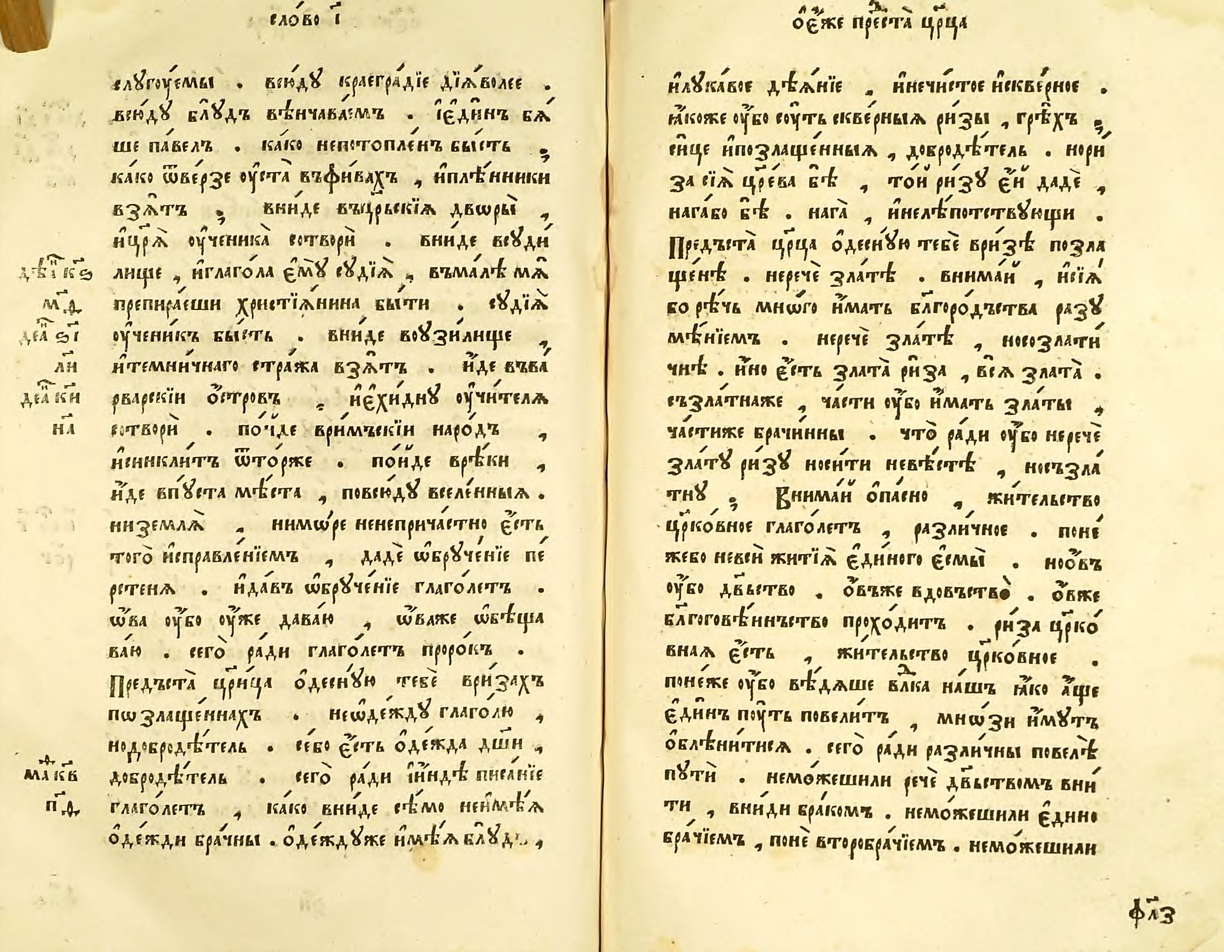 сло́во і҃
слꙋгоуемы . всю́дꙋ краегра́дїе дїѧ́волее .
всю́дꙋ блꙋ́дъ вѣнчава́емъ . і҆еди́нъ бѧ
ше па́велъ . ка́ко непотопле́нъ бы́сть ;
ка́ко ѿве́рзе оу҆ста̀ въфи́вахъ , и҆плѣ́нники
взѧ́тъ ; вни́де въцр҃ьскїѧ дво́ры ,
и҆цр҃ѧ̀ оу҆ченика̀ сотворѝ . вни́де всꙋди
лище , и҆глаго́ла є҆мꙋ̀ сꙋдїѧ̀ , въма́лѣ мѧ̀
препира́еши христїѧ́нина бы́ти . сꙋдїѧ̀
оу҆чени́къ бы́сть . вни́де воꙋзи́лище ,
и҆темни́чнаго стра́жа взѧ́тъ . и҆́де въва́
рварскїи о҆́стровъ , и҆є҆хи́днꙋ оу҆чи́телѧ
сотворѝ . пои́де ври́мъскїи наро́дъ ,
и҆синкли́тъ ѿто́рже . пои́де врѣ́ки ,
и҆́де впꙋ́ста мѣ́ста , повсю́дꙋ вселе́нныѧ .
низемлѧ̀ , нимо́ре ненеприча́стно є҆́сть
того̀ и҆справле́нїемъ , дадѐ ѡ҆брꙋче́нїе пе́
рстенѧ . и҆да́въ ѡ҆брꙋче́нїе глаго́летъ .
ѡ҆́ва оу҆́бо оу҆́же даваю̀ , ѡ҆́важе ѡ҆бѣща
ва́ю . сего̀ ра́ди глаго́летъ проро́къ .
Предъста̀ цр҃и́ца о҆деснꙋ́ю тебѐ ври́захъ
позлаще́ннахъ . неѡ҆де́ждꙋ глаго́лю ,
нодобродѣ́тель . се́бо є҆́сть о҆де́жда дш҃и ,
добродѣ́тель . сего̀ ра́ди и҆и҆ндѣ̀ писа́нїе
глаго́летъ , ка́ко вни́де сѣ́мо неи҆мѣ́ѧ
о҆де́жди бра́чны . о҆де́ждꙋже и҆мѣ́ѧ
дѣѧ҃ к҃ѕ
м҃д
деа ѕ҃і
ли
деа к҃и
на
ма к҃в
п҃д
оу҆́ е҆́же прⷣеста̀ цр҃ца
и҆лꙋка́вое дѣѧ́нїе , и҆нечи́стое и҆скве́рное .
ꙗ҆́коже оу҆́бо соу́ть скве́рныѧ ри́зы , грѣ́хъ ;
си́це и҆позлаще́нныѧ , добродѣ́тель . нори́
за сїѧ̀ цр҃ева бѣ̀ , то́й ри́зꙋ є҆́й дадѐ ,
нага́бо бѣ̀ . нага̀ , и҆нелѣ́потствꙋющи .
Предъста̀ цр҃ца о҆деснꙋ́ю тебѐ ври́зѣ позла
ще́нѣ . неречѐ зла́тѣ . внима́й , и҆сїѧ́
бо рѣ́чь мно́го и҆́мать бл҃горо́дъства разꙋ
мѣ́нїемъ . неречѐ зла́тѣ , носозлати́
чнѣ . и҆́но є҆́сть злата̀ ри́за , всѧ̀ злата̀ .
създа́тнаже , ча́сти оу҆́бо и҆́мать зла́ты ,
ча́стиже брачи́нны . что̀ ра́ди оу҆́бо неречѐ
зла́тꙋ ри́зꙋ носи́ти невѣ́стѣ , носъзла́
тнꙋ ; Внима́й о҆па́сно , жи́тельство
цр҃ко́вное глаго́летъ , разли́чное . поне́
жебо невсѝ житїѧ̀ є҆ди́ного є҆смы̀ . ноо҆́въ
оу҆́бо дв҃ьство , о҆́въже вдовъство̀ . о҆́вже
бл҃гоговѣ́инъство прохо́дитъ . ри́за цр҃ко́
внаѧ є҆́сть , жи́тельство цр҃ко́вное .
поне́же оу҆́бо вѣ́дѧше влⷣка на́шъ ꙗ҆́ко а҆́ще
є҆ди́нъ пꙋ́ть повели́тъ , мно́зи и҆́мꙋтъ
о҆блѣни́тисѧ . сего̀ ра́ди разли́чны повелѣ̀
пꙋтѝ . немо́жешили речѐ дв҃ьствомъ вни́
ти , вни́ди бра́комъ . немо́жешили є҆дино
бра́чїемъ , понѐ второбра́чїемъ . немо́жешили
ф҃лз